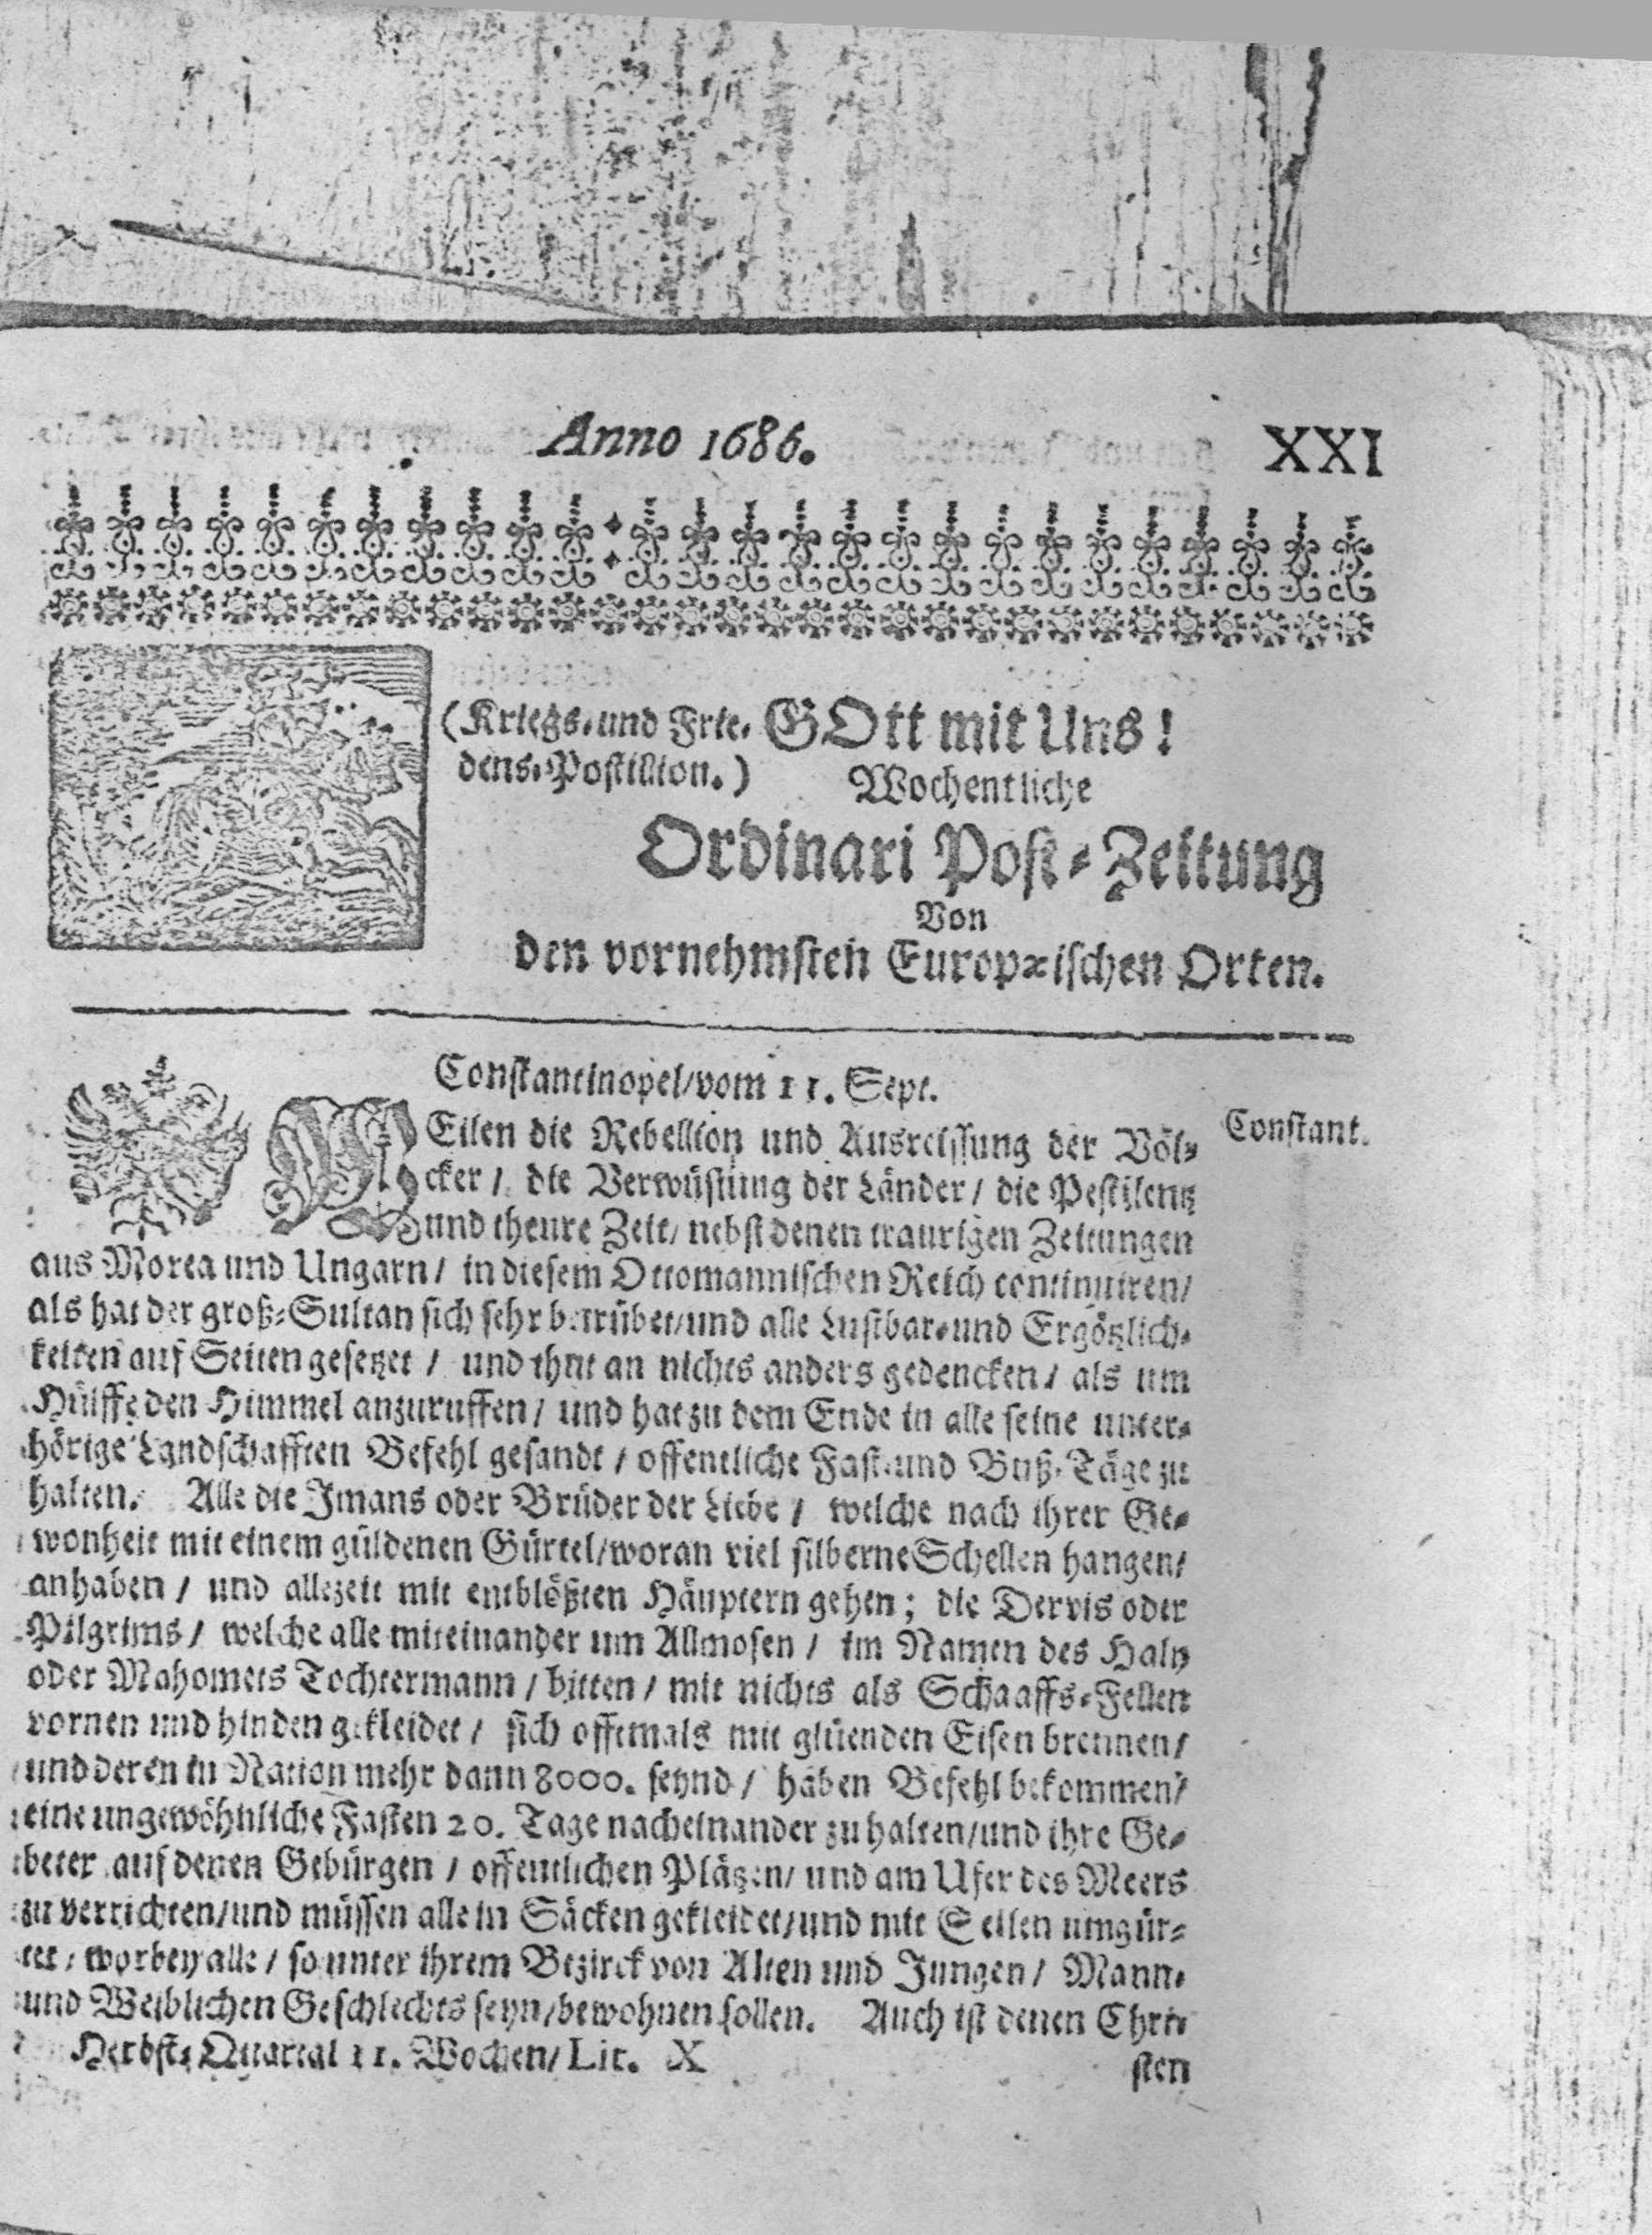 Anno 1686. XXI
(Kriegs-und Frie-
dens-Postillion.)
GOtt mit Uns!
Wochentliche
Ordinari Post-Zeitung
Von
den vornehmsten Europæischen Orten.
Constantinopel/vom 11. Sept.
Constant.
WEilen die Rebellion und Ausreissung der Völ-
cker / die Verwüstung der Länder / die Pestilentz
und theure Zeit/ nebst denen traurigen Zeitungen
aus Morea und Ungarn / in diesem Ottomannischen Reich continuiren/
als hat der groß-Sultan sich sehr betrübet/und alle Lustbar-und Ergötzlich-
keiten auf Seiten gesetzet / und thut an nichts anders gedencken / als um
Hülffe den Himmel anzuruffen / und hat zu dem Ende in alle seine unter-
hörige Landschafften Befehl gesandt / offentliche Fast-und Buß-Täge zu
halten. Alle die Imans oder Brüder der Liebe / welche nach ihrer Ge-
wonheit mit einem güldenen Gürtel/woran viel silberne Schellen hangen/
anhaben / und allezeit mit entblößten Häuptern gehen; die Dervis oder
Pilgrims / welche alle miteinander um Allmosen / im Namen des Haly
oder Mahomets Tochtermann / bitten / mit nichts als Schaaffs-Fellen
vornen und hinden gekleidet / sich offtmals mit glüenden Eisen brennen /
und deren in Nation mehr dann 8000. seynd / haben Befehl bekommen/
eine ungewöhnliche Fasten 20. Tage nacheinander zu halten/und ihre Ge-
beter auf denen Gebürgen / offentlichen Plätzen/ und am Ufer des Meers
zu verrichten/und müssen alle in Säcken gekleidet/und mit Seilen umgür-
tet / worbey alle / so unter ihrem Bezirck von Alten und Jungen / Mann-
und Weiblichen Geschlechts seyn/bewohnen sollen. Auch ist denen Chri-
Herbst-Quartal 11. Wochen/ Lit. X
sten